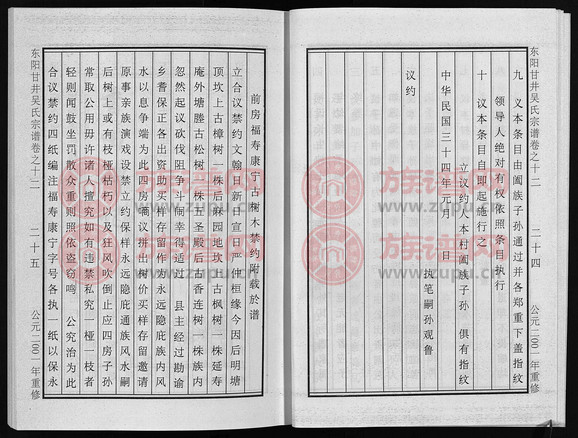 东阳甘井吴氏宗谱卷之十二
二十四
公元二〇〇一年重修
九 义本条目由阖族子孙通过并各郑重下盖指纹
领导人绝对有权依照条目执行
十 议本条目自即起施行之
立议约人本村阖族子孙 俱有指纹
中华民国三十四年元月 日
执笔嗣孙观鲁
议约
前房福寿康宁古树木禁约附载於谱
立合议禁约文翰日新日宣日严仲桓缘今因后明塘
顶坎上古樟树一株后麻园地坎上古枫树一株延寿
庵外塘塍古松树一株五圣殿后古香连树一株族内
忽然起议砍伐阻争斗闹幸得适过 县主经过勘谕
乡耆保正各出资助买样存留作为永远隐庇族内风
水以息争端为此四房嘀议拼出树价买样存留邀请
原事亲族演戏设禁立约保样永远隐庇通族风水嗣
后树上或有枝桠枯朽以及狂风吹倒止应四房子孙
常取公用毋许诸人擅究如有违禁私究一桠一枝者
轻则闻鼓坐罚散众重则照依盗窃鸣 公究治为此
合议禁约四纸编注福寿康宁字号各执一纸以保永
东阳甘井吴氏宗谱卷之十二
二十五
公元二〇〇一年重修
族谱网
www.zupu.cn
族谱网
www.zupu.cn